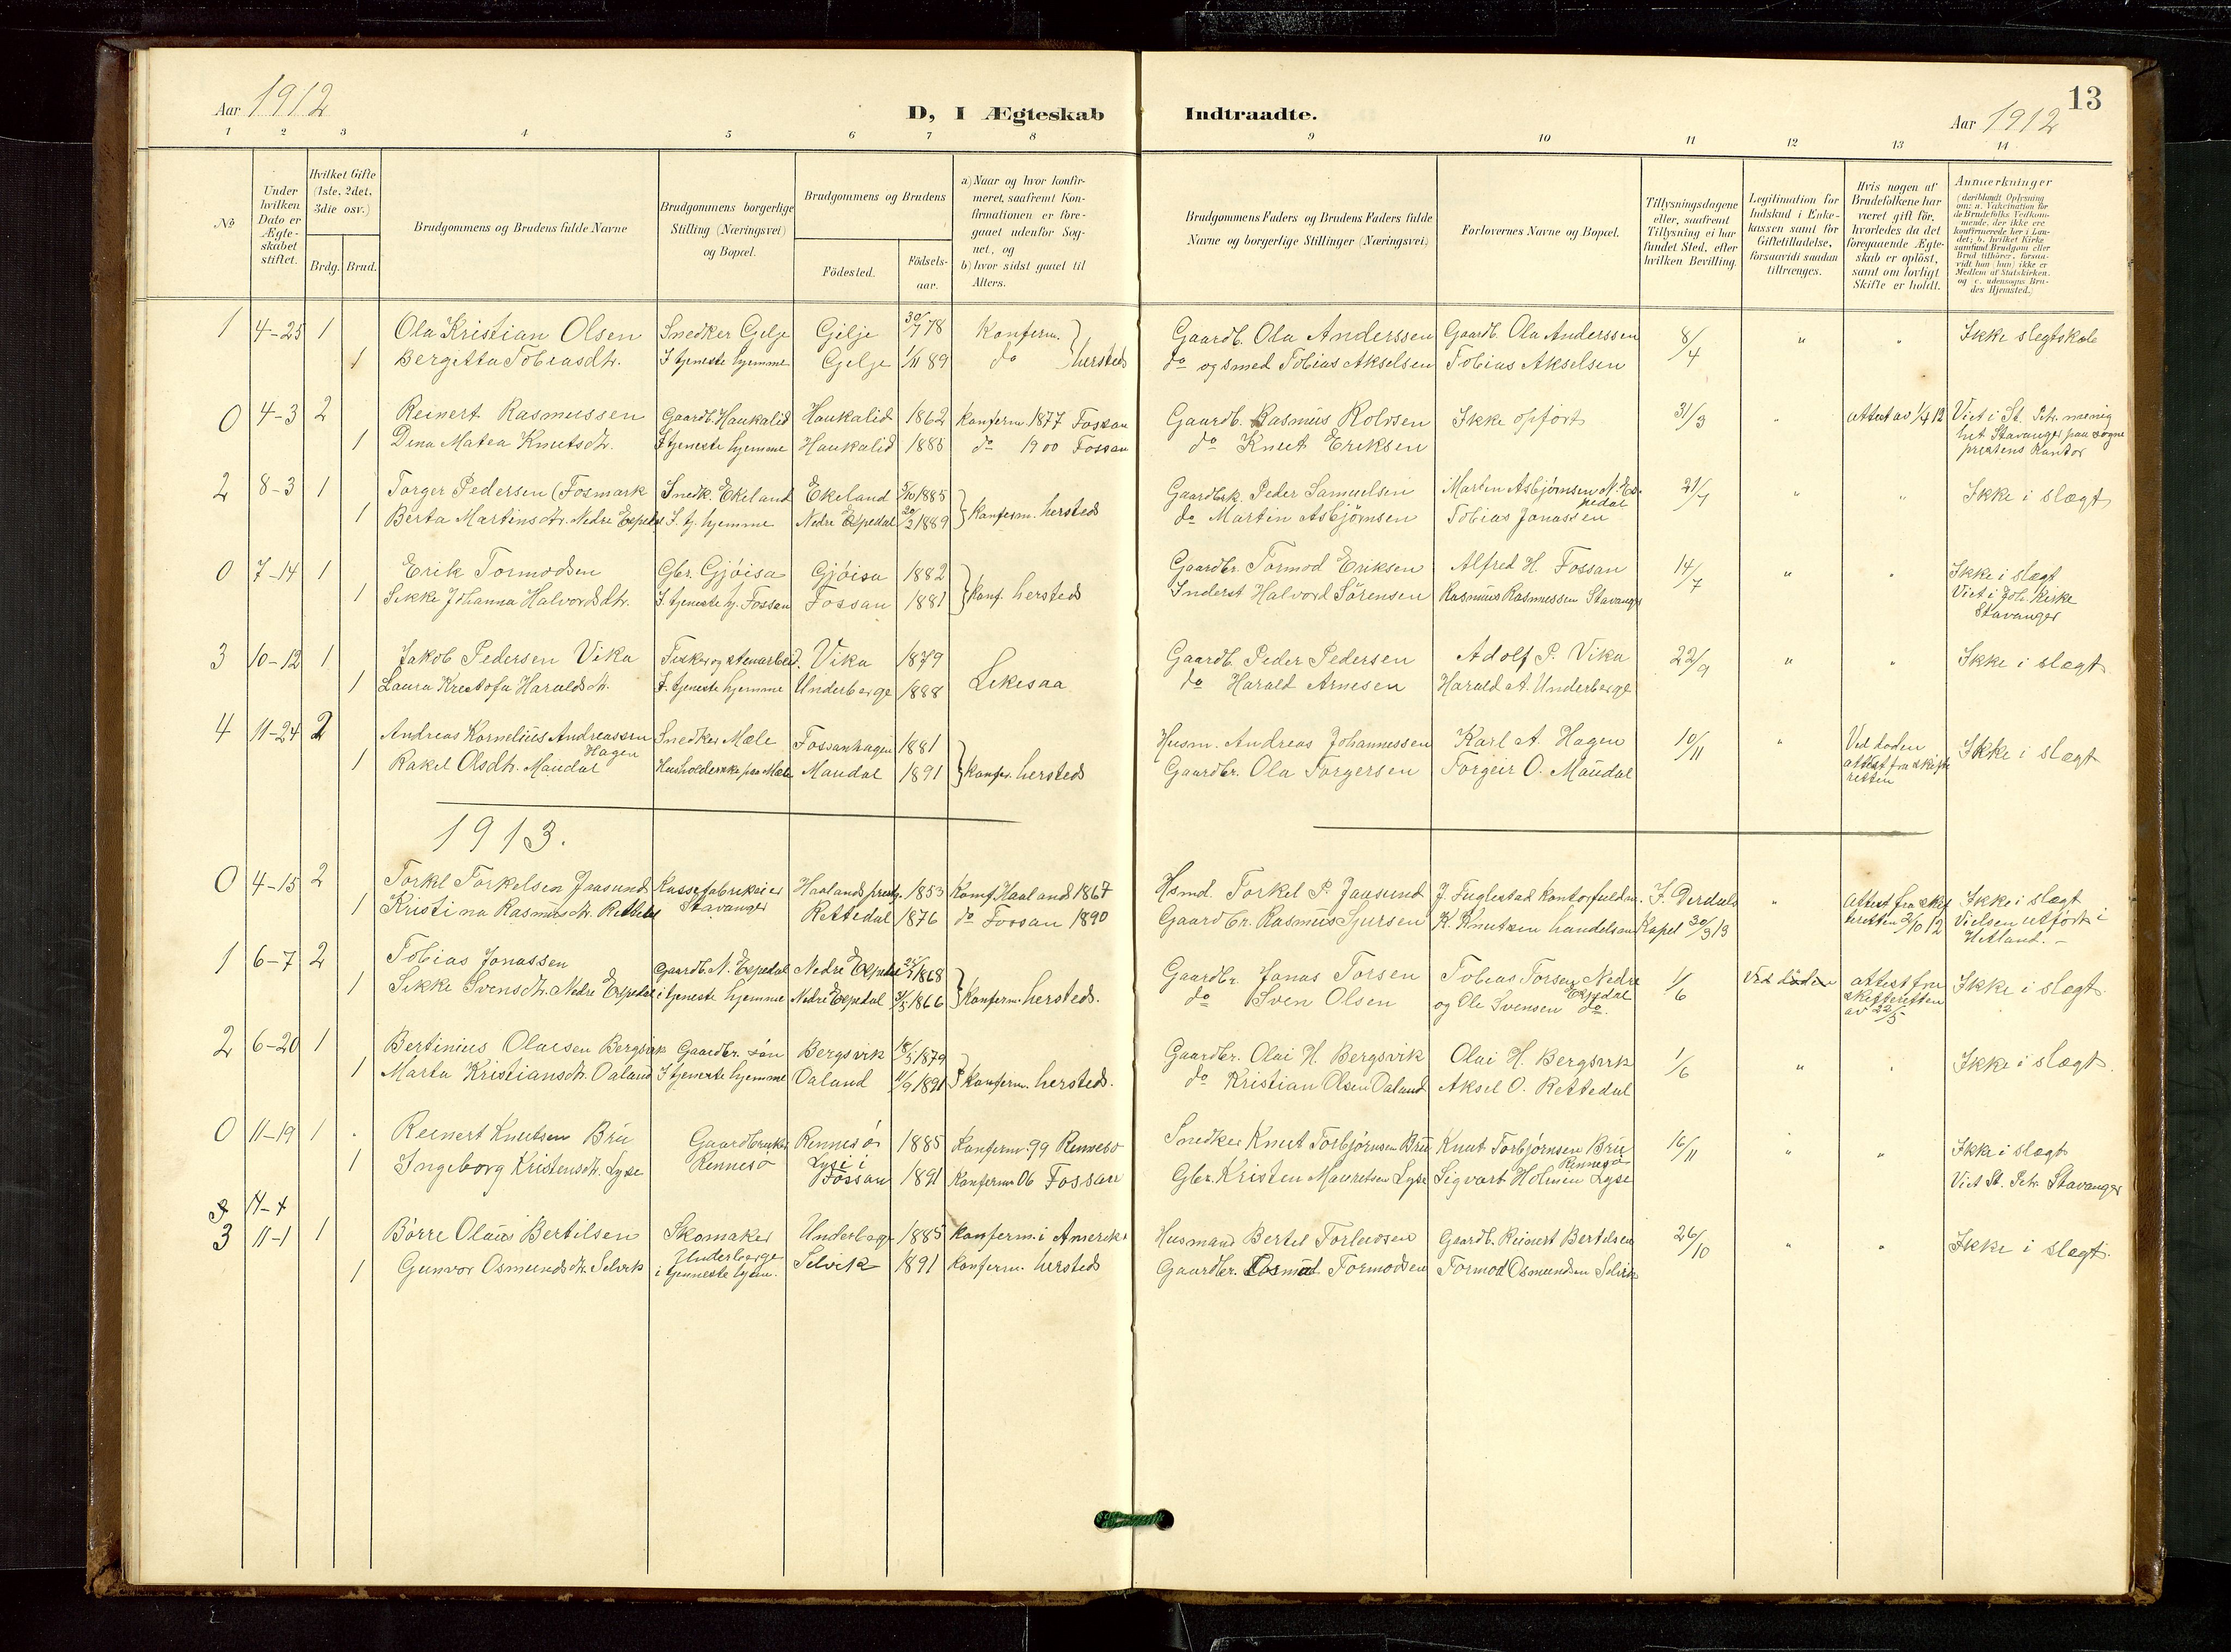 Aar 1912
D, I Ægteskab Indtraadte.
13
Aar 1912
1 2 3 4 5 6 7 8 9 10 11 12 13 14
No
Under hvilken Dato er Ægteskabet stiftet.
Hvilket Gifte (1ste, 2det, 3die osv.)
Brdg. Brud.
Brudgommens og Brudens fulde Navne
Brudgommens borgerlige Stilling (Næringsvei) og Bopæl.
Brudgommens og Brudens
Födested. Födsels-aar.
a) Naar og hvor konfirmeret, saafremt Konfirmationen er foregaaet udenfor Sognet, og
b) hvor sidst gaaet til Alters.
Brudgommens Faders og Brudens Faders fulde Navne og borgerlige Stillinger (Næringsvei)
Forlovernes Navne og Bopæl.
Tillysningsdagene eller, saafremt Tillysning ei har fundet Sted, efter hvilken Bevilling.
Legitimation for Indskud i Enkekassen samt for Giftetilladelse, forsaavidt saadan tiltrænges.
Hvis nogen af Brudefolkene har været gift för, hvorledes da det foregaaende Ægteskab er oplöst, samt om lovligt Skifte er holdt.
Anmærkninger (deriblandt Oplysning om: a. Vakcination for de Brudefolks Vedkommende, der ikke ere konfirmerede her i Landet; b. hvilket Kirkesamfund Brudgom eller Brud tilhører, forsaavidt han (hun) ikke er Medlem af Statskirken. og c. udensogns Brudes Hjemsted.)
1 4-25 1 Ola Kristian Olsen Snedker Gilje Gilje 30/7 78 Konferm. Gaardb. Ola Anderssen Gaardb. Ola Anderssen 8/4 " " Ikke slegtskab
1 Bergitta Tobiasdtr. I tjeneste hjemme Gilje 1/11 89 do hersteds do og smed Tobias Akselsen Tobias Akselsen
0 4-3 2 Reinert Rasmussen Gaardb. Haukalid Haukalid 1862 Konferm 1877 Fossan Gaardb. Rasmus Rolvsen Ikke opført 31/3 " attest av 1/4 12 Viet i St. Petr. menig
1 Dina Matea Knutsdtr. I tjeneste hjemme Haukalid 1885 do 1900 Fossan do Knut Eriksen het Stavanger paa sogne
prestens kontor
2 8-3 1 Torger Pedersen (Fosmark Snedk. Ekeland Ekeland 5/10 1885 Gaardbrk. Peder Samuelsen Marten Asbjørnsen N. Espedal 21/7 " " Ikke i slægt
1 Berta Martinsdtr. Nedre Espedal I tj. hjemme Nedre Espedal 20/2 1889 Konferm. hersteds do Martin Asbjørnsen Tobias Jonassen
0 7-14 1 Erik Tormodsen Gbr. Gjöisa Gjöisa 1882 Gaardbr. Tormod Eriksen Alfred H. Fossan 14/7 " " Ikke i slægt
1 Sikke Johanna Halvordsdtr. I tjeneste hj. Fossan Fossan 1881 Konf. hersteds Inderst Halvord Sörensen Rasmus Rasmussen Stavanger Viet i Joh. Kirke
Stavanger
3 10-12 1 Jakob Pedersen Vika Fisker og stenarbeid. Vika 1879 Gaardb. Peder Pedersen Adolf P. Vika 22/9 " " Ikke i slægt
1 Laura Kristofa Haraldsdtr. I. tjeneste hjemme Underberge 1888 Likesaa do Harald Arnesen Harald A. Underberge
4 11-24 2 Andreas Kornelius Andreassen Hagen Snedker Mæle Fossanhagen 1881 Husm. Andreas Johannessen Karl A. Hagen 10/11 " Ved døden Ikke i slægt
1 Rakel Olsdtr. Maudal Husholderske paa Mæle Maudal 1891 Konfer. hersteds Gaardbr. Ola Torgersen Torgeir O. Maudal attest fra skifte
retten
1913.
0 4-15 2 Torkel Torkelsen Jaasund Kassefabrikeier Haalands prestg. 1853 Konf. Haaland 1867 Hsmd. Torkel P. Jaasund J. Fuglestad Kontorfuldm. I. Dirdals " Attest fra skif Ikke i slægt
1 Kristina Rasmusdtr. Rettedal Stavanger Rettedal 1876 do Fossan 1890 Gaardbr. Rasmus Sjursen K. Knutsen handelsm Kapel 30/3 13 teretten 2/10 12 Vielsen utført i
Hetland. -
1 6-7 2 Tobias Jonassen Gaardb. N. Espedal Nedre Espedal 1868 Gaardbr Jonas Torsen Tobias Torsen Nedre Espedal 1/6 Ved döden attest fra Ikke i slægt
1 Sikke Svensdtr. Nedre Espedal i tjeneste hjemme Nedre Espedal 1866 Konferm. hersteds. do Sven Olsen og Ole Svensen do. skifteretten
av 22/5
2 6-20 1 Bertinius Olaisen Bergsvik Gaardbr. sön Bergsvik 18/5 1879 Gaardbr. Olai H. Bergsvik Olai H. Bergsvik 1/6 " " Ikke i slægt.
1 Marta Kristiansdtr. Oaland I tjeneste hjemme Oaland 11/9 1891 Konferm. hersteds. do Kristian Olsen Oaland Aksel O. Rettedal
0 11-19 1 Reinert Knutsen Bru Gaardbruker Rennesö 1885 Konferm. 99 Rennesö Snedker Knut Torbjørnsen Bru Knut Torbjørnsen Bru Rennesö 16/11 " " Ikke i slægt
1 Ingeborg Kristensdtr. Lyse Rennesö Lyse i Fossan 1891 Konferm 06 Fossan Gbr. Kristen Mauritsen Lyse Sigvart Holmen Lyse Viet St. Petr. Stavanger
3 11-1 1 Børre Olaus Bertilsen Skomaker Underberge Underberge 1885 Konferm. i Amerika Husmand Bertel Torleivsen Gaardb. Reinert Bertelsen 26/10 " " Ikke i slægt.
1 Gunvor Osmundsdtr. Selvik i tjenneste hjem. Selvik 1891 Konferm. hersteds Gaardbr. Tormodsen Tormod Osmundsen Selvik